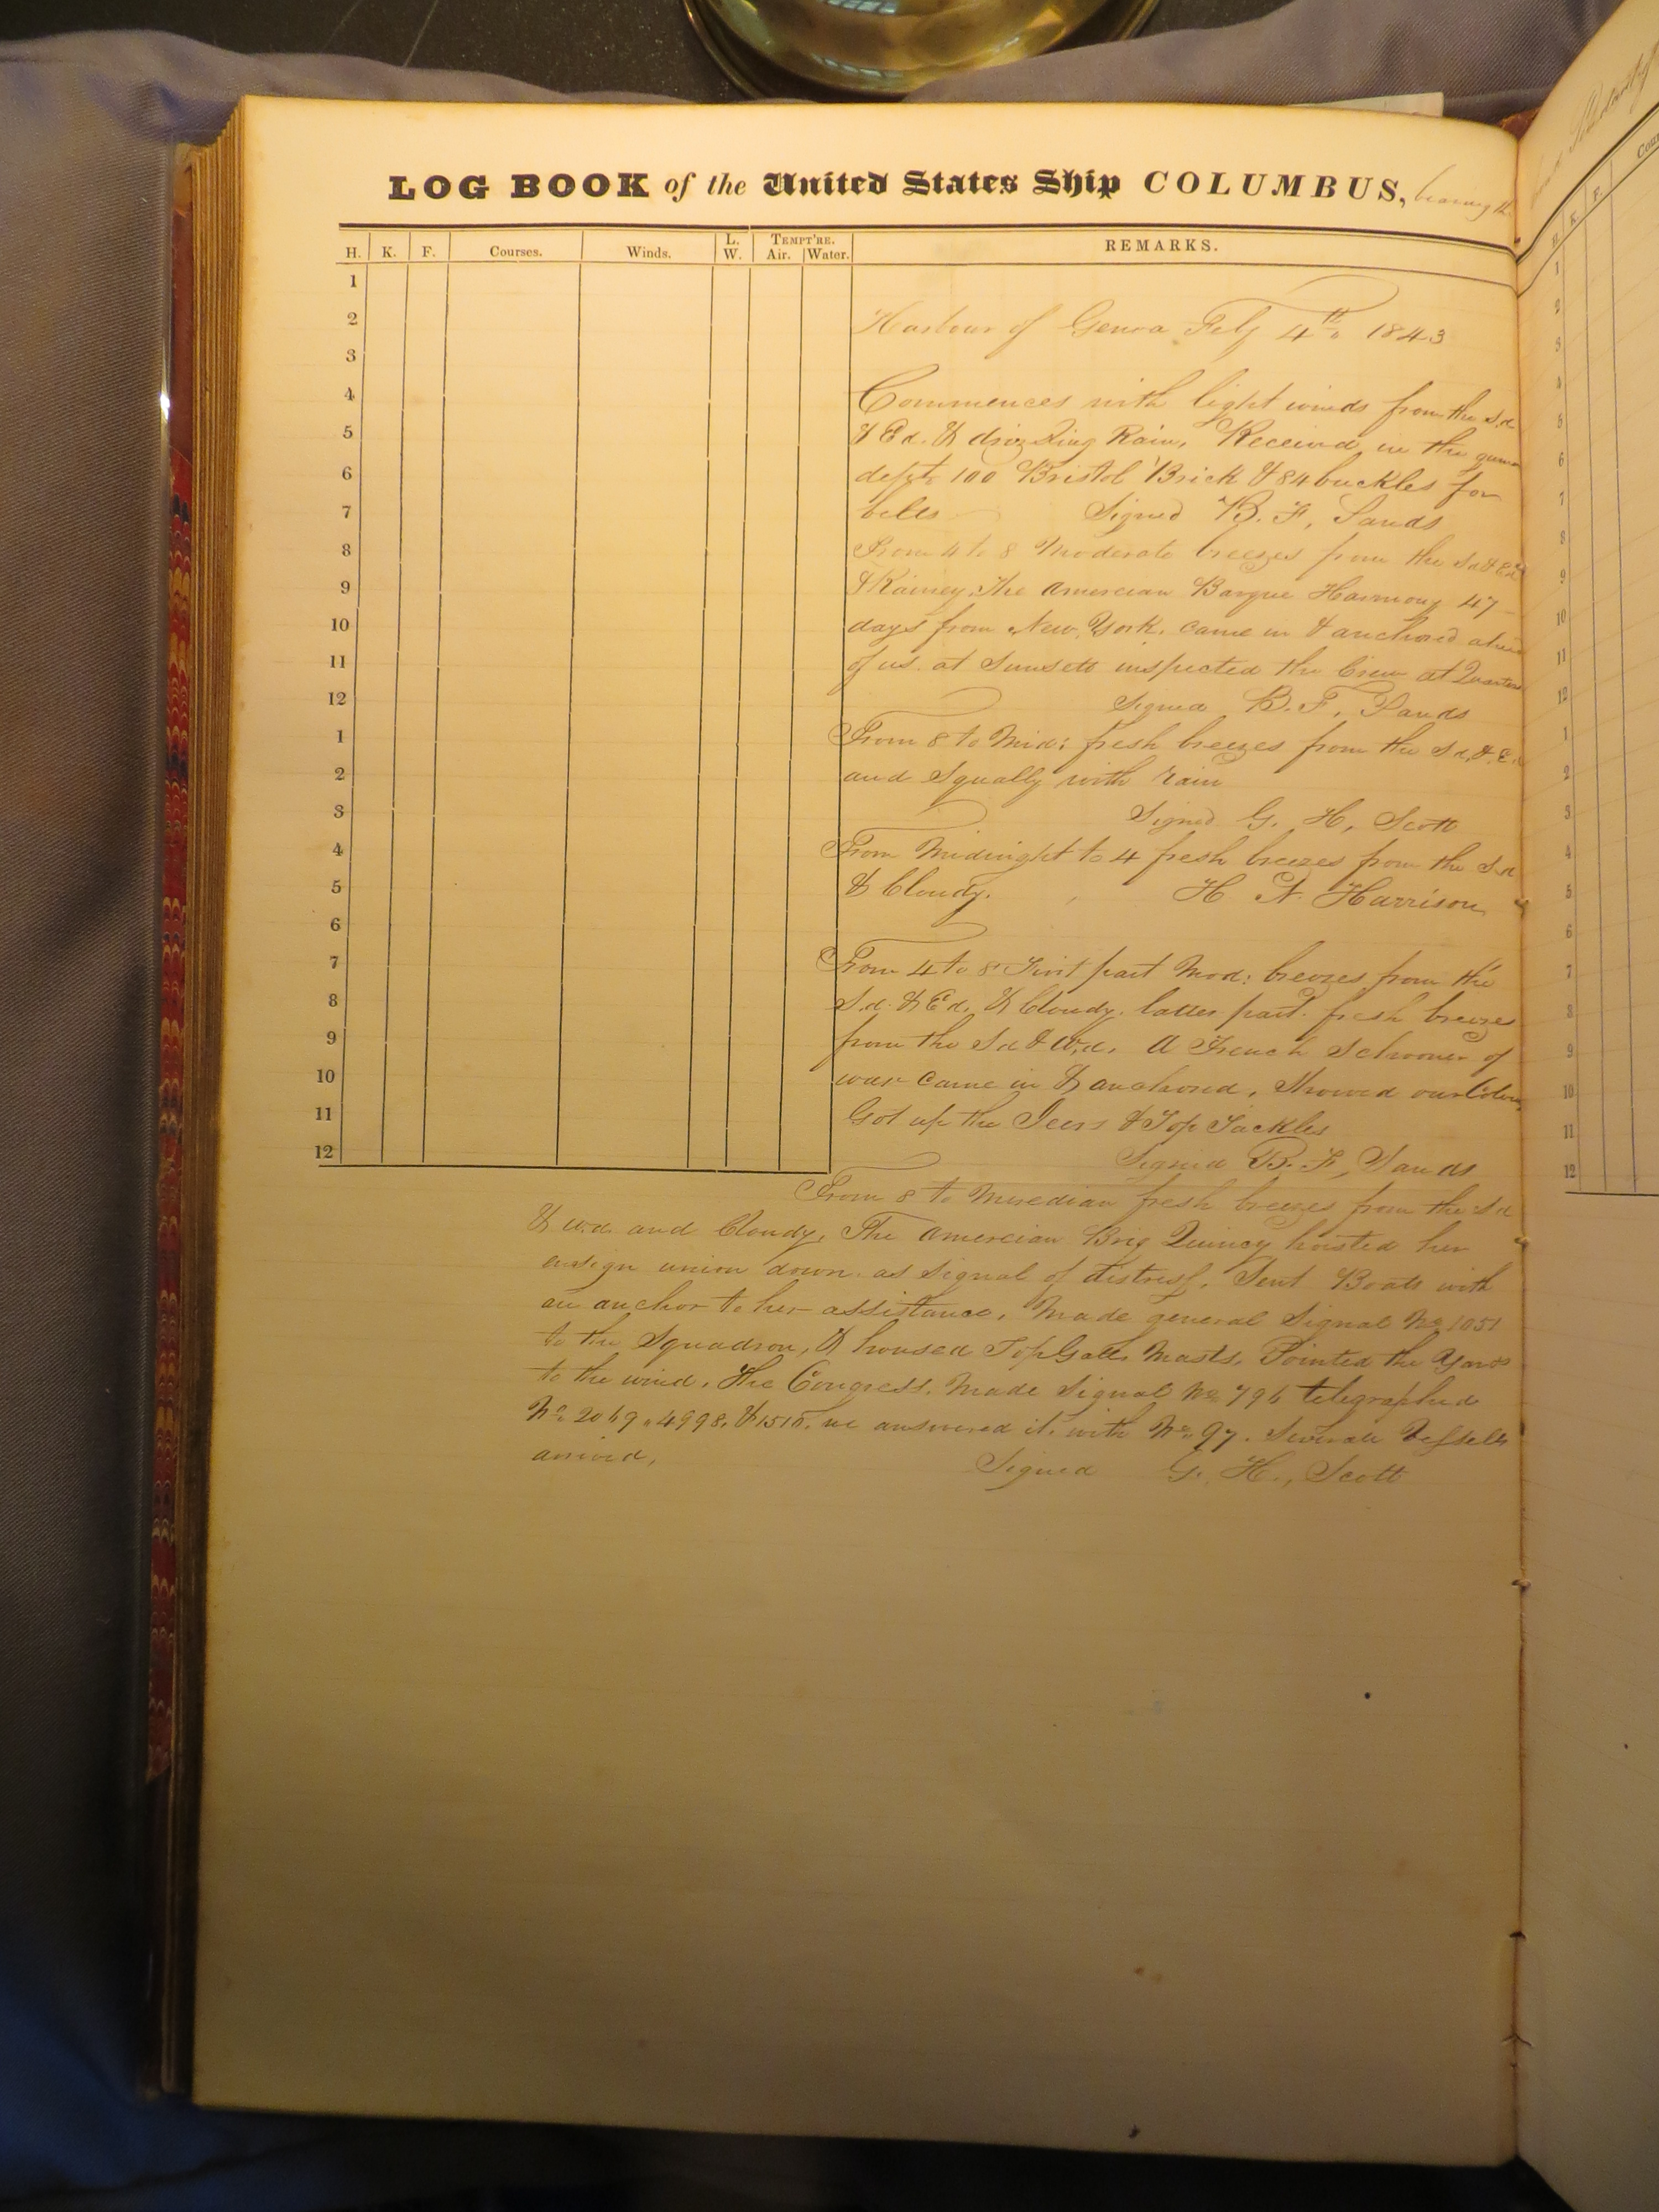 LOG BOOK of the United States Ship COLUMBUS, bearing the
H. K. F. Courses. Winds. L. W. TEMPT'RE. Air. Water. REMARKS.
1
2
3
4
5
6
7
8
9
10
11
12
1
2
3
4
5
6
7
8
9
10
11
12
Harbour of Genoa Feby 4th 1843
Commences with light winds from the Sd
& Ed. & drizzling Rain, Received in the
dept 100 Bristol Brick & 84 buckles for
belts Signed B. F. Sands
From 4 to 8 Moderate breezes from the Sd & Ed
& Rainey. The Amercian Barque Harmony 47
days from New York. came in & anchored ahead
of us. at Sunsett inspected the Crew at Quarters
Signed B. F. Sands
From 8 to Mid: fresh breezes from the Sd. & E.
and Squally with rain
Signed G. H. Scott
From Midnight to 4 fresh breezes from the Sd
& Cloudy. H N. Harrison
From 4 to 8 First part Mod: breezes from the
Sd. & Ed. & Cloudy. latter part. fresh breezes
from the Sd & Wd. A French Schooner of
war came in & anchored, Showed our Colours
Got up the Jeers & Top Tackles
Signed B. F. Sands
From 8 to Meredian fresh breezes from the Sd
& Wd. and Cloudy, The Amercian Brig Quincy hoisted her
ensign union down. as Signal of distress. Sent Boats with
an anchor to her assistance, Made general Signal No 1051
to the Squadron, & housed TopGallt Masts. Pointed the Yards
to the wind. The Congress. Made Signal No 796 telegraphed
No. 2069, 4998, & we answered it. with No. 97. Vessells
arrived, Signed G. H., Scott